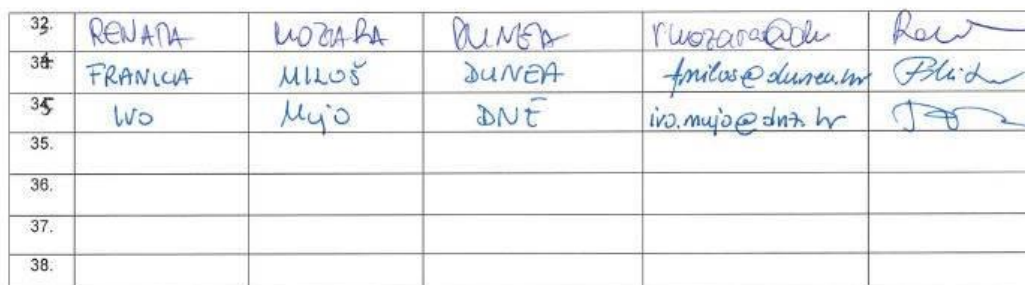 32. RENATA MOZARA DUNEA rmozara@du
33. FRANICA MILOŠ DUNEA fmilos@dunea.hr
34. IVO Mujo DNŽ ivo.mujo@dnz.hr
35.
36.
37.
38.